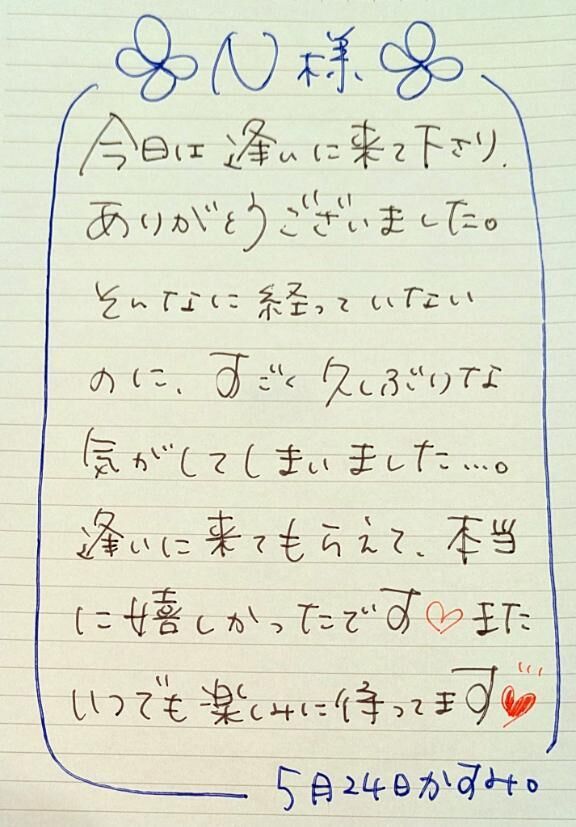 N様
今日は逢いに来て下さり、
ありがとうございました。
そんなに経っていない
のに、すごく久しぶりな
気がしてしまいました…。
逢いに来てもらえて、本当
に嬉しかったです♡また
いつでも楽しみに待ってます♥
5月24日かすみ。